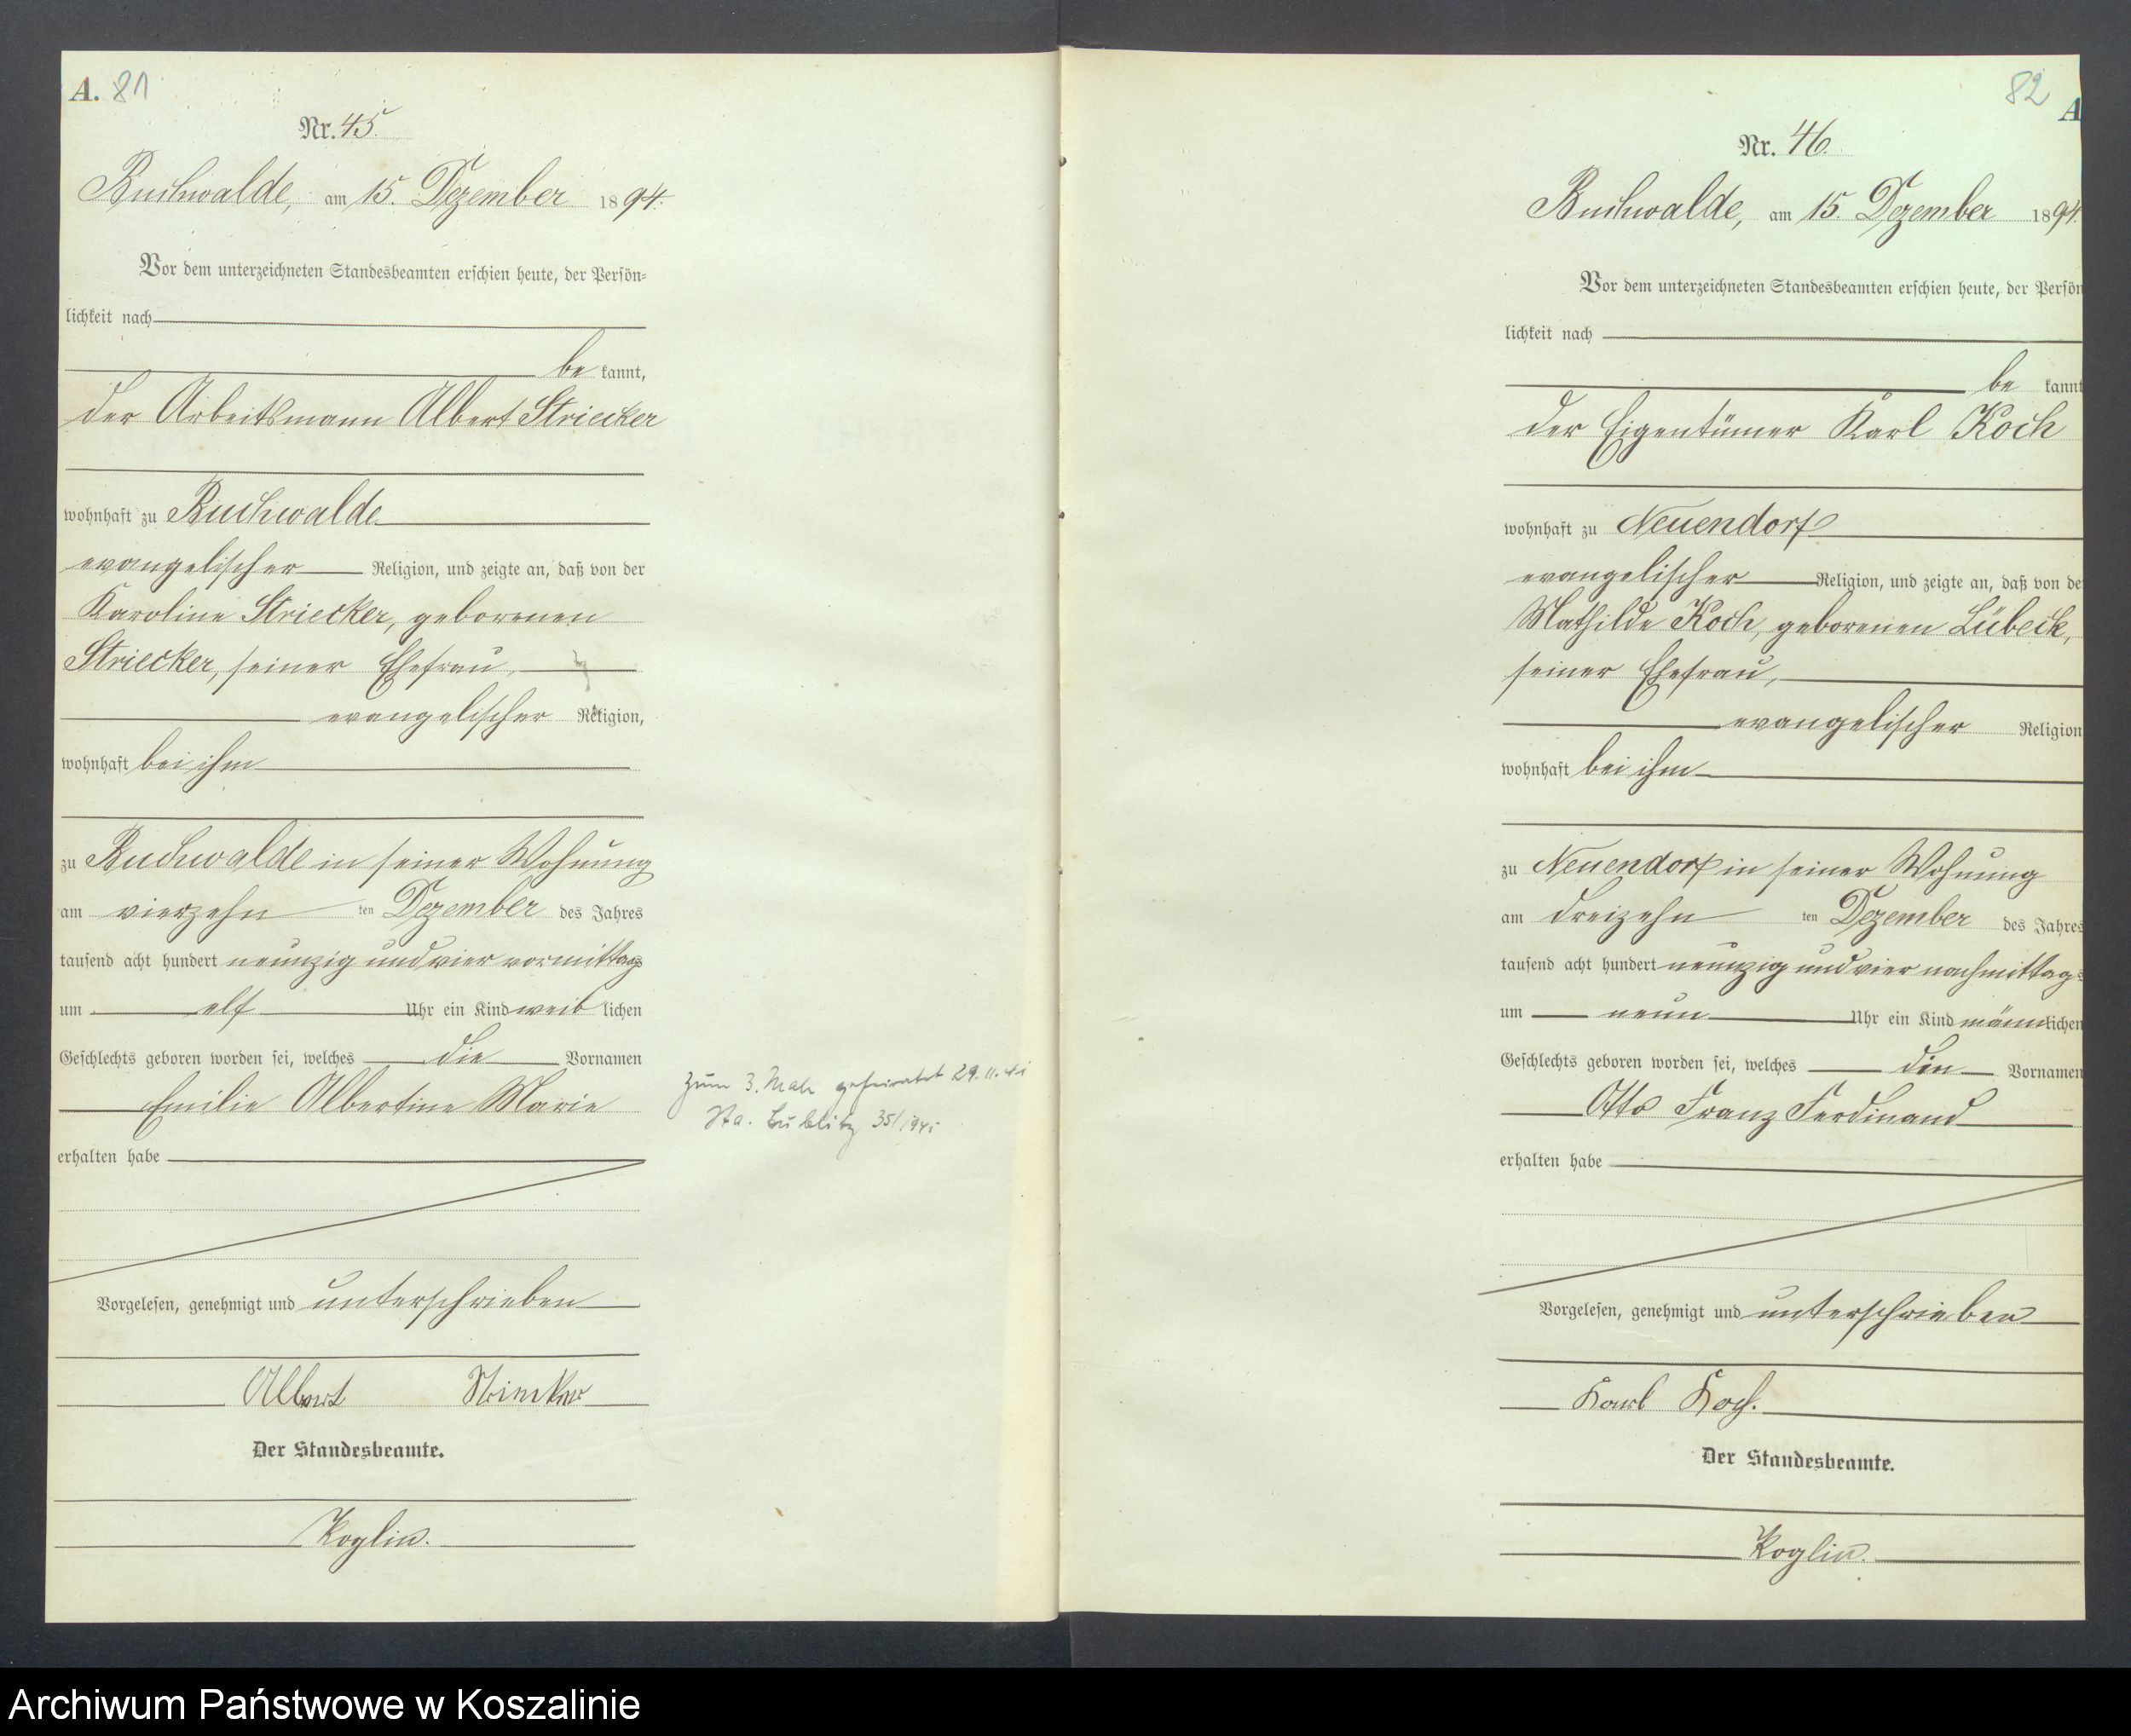 A. 81
Nr. 45.
Buchwalde, am 15. Dezember 1894.
Vor dem unterzeichneten Standesbeamten erschien heute, der Persön-
lichkeit nach
be kannt,
der Arbeitsmann Albert Striecker
wohnhaft zu Buchwalde
evangelischer Religion, und zeigte an, daß von der
Karoline Striecker, geborenen
Striecker, seiner Ehefrau,
evangelischer Religion,
wohnhaft bei ihm
zu Buchwalde in seiner Wohnung
am vierzehn ten Dezember des Jahres
tausend acht hundert neunzig und vier vormittags
um elf Uhr ein Kind weib lichen
Geschlechts geboren worden sei, welches die Vornamen
Emilie Albertine Marie
erhalten habe
Vorgelesen, genehmigt und unterschrieben
Albert Striecker
Der Standesbeamte.
Koglin.
zum 3. Male geheiratet 29.11.41
Sta. Bublitz 35/1941
82
A
Nr. 46.
Buchwalde, am 15. Dezember 1894.
Vor dem unterzeichneten Standesbeamten erschien heute, der Persön
lichkeit nach
be kannt
der Eigentümer Karl Koch
wohnhaft zu Neuendorf
evangelischer Religion, und zeigte an, daß von de
Mathilde Koch, geborenen Lübeck,
seiner Ehefrau,
evangelischer Religion
wohnhaft bei ihm
zu Neuendorf in seiner Wohnung
am dreizehn ten Dezember des Jahres
tausend acht hundert neunzig und vier nachmittags
um neun Uhr ein Kind männlichen
Geschlechts geboren worden sei, welches den Vornamen
Otto Franz Ferdinand
erhalten habe
Vorgelesen, genehmigt und unterschrieben
Karl Koch.
Der Standesbeamte.
Koglin.
Archiwum Państwowe w Koszalinie